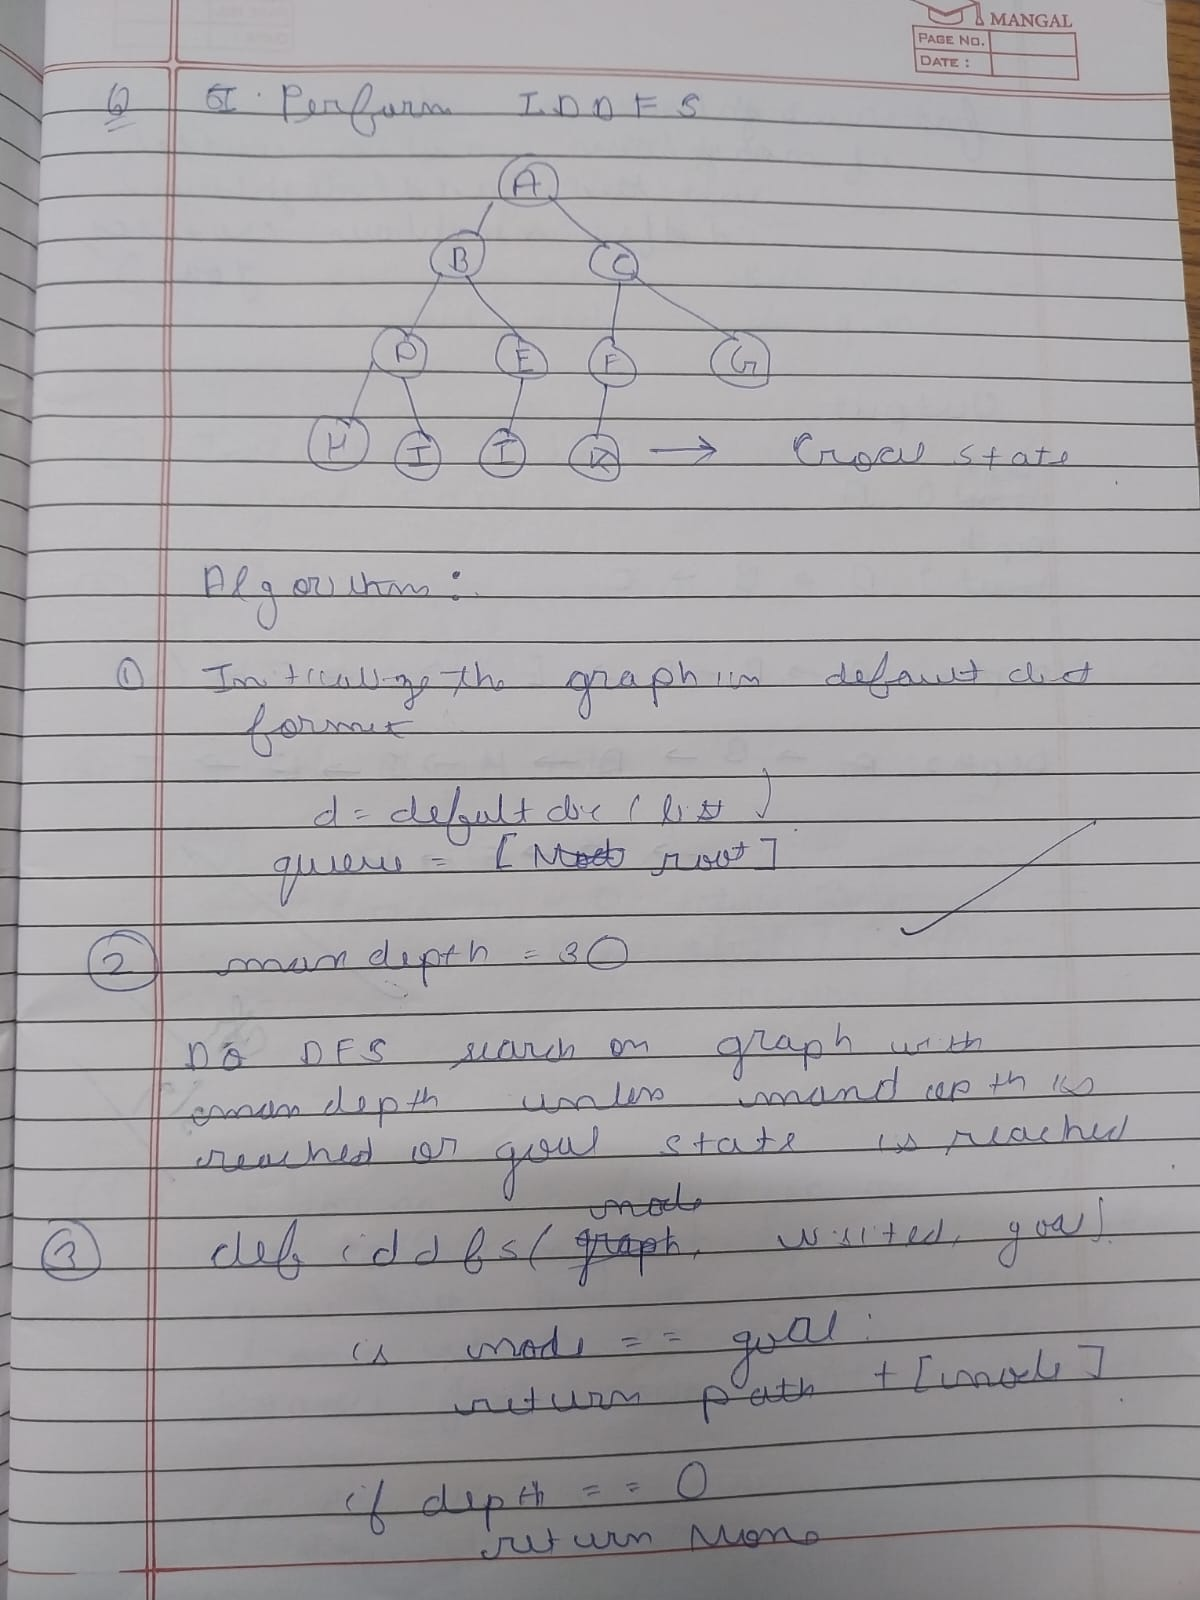 MANGAL
PAGE NO.
DATE :
Q I. Perform IDDFS
A
B C
D E F G
H I I K → Goal state
Algorithm :
① Initialize the graph in default dict
format
d = default dic (list)
queue = [ root]
② max depth = 30
Do DFS search on graph with
max depth unless max depth is
reached or goal state is reached
node
③ def iddfs( graph, visited, goal)
is node == goal :
return path + [node]
if depth == 0
return None